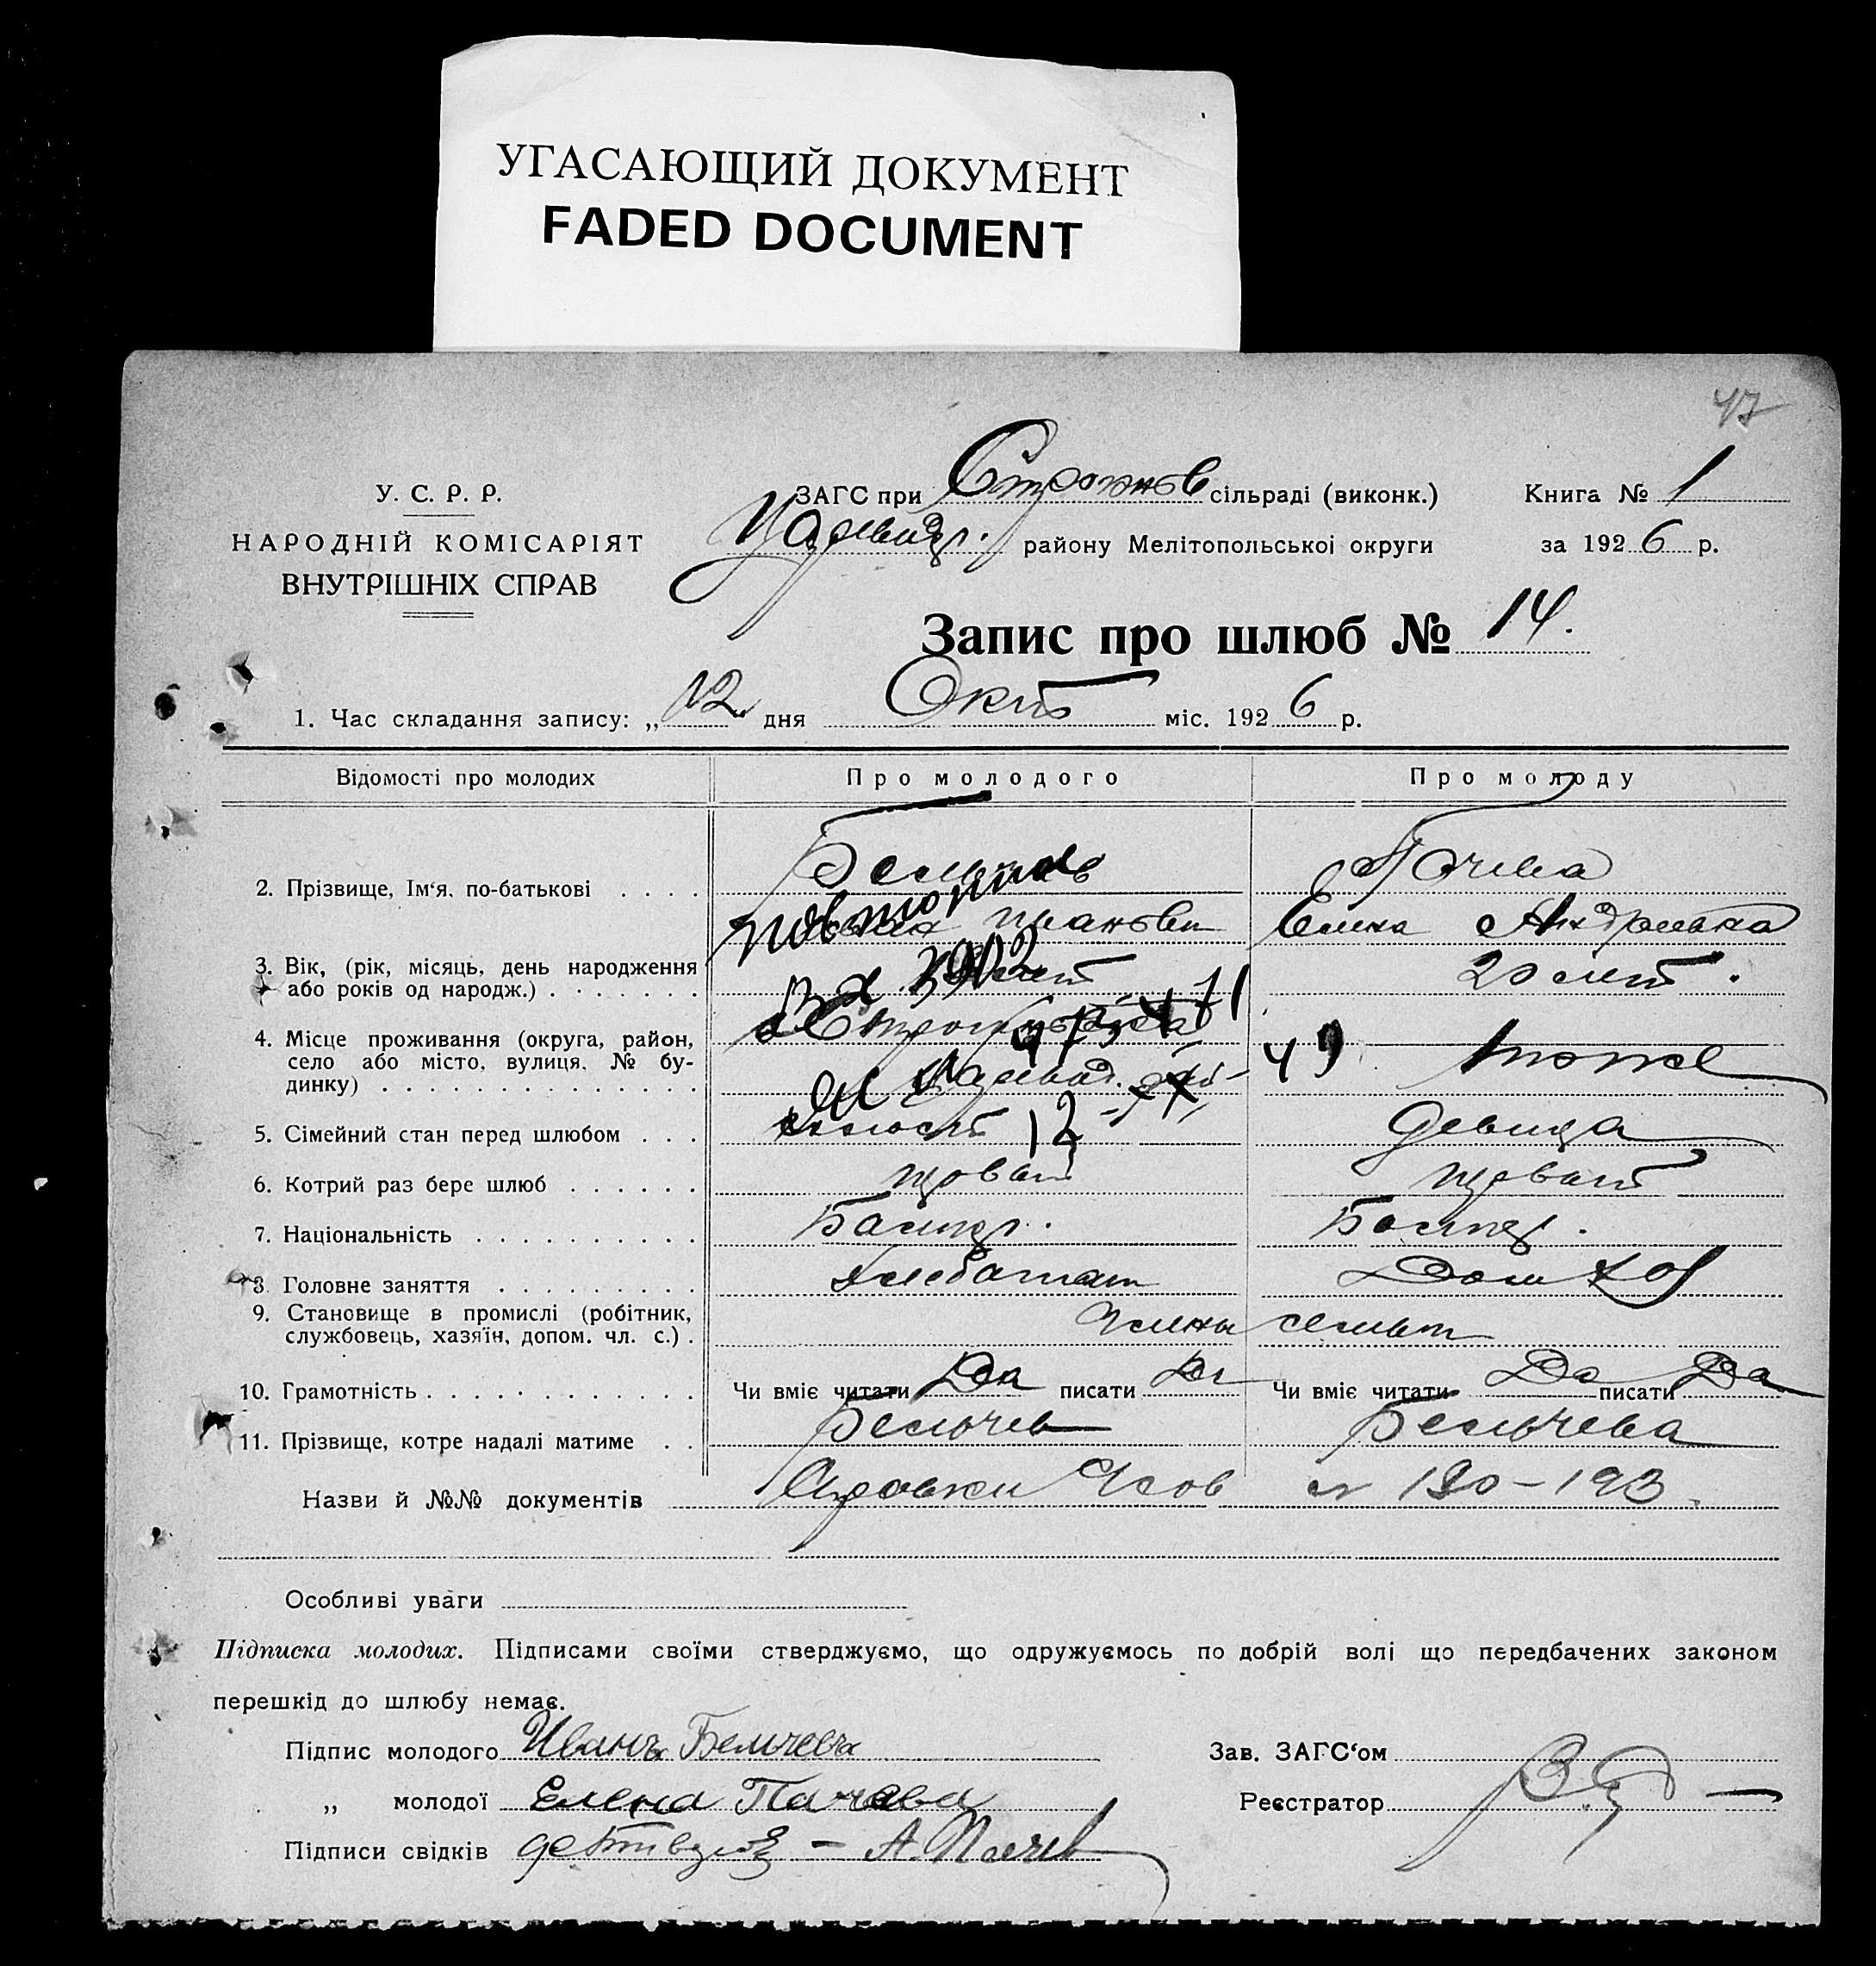 УГАСАЮЩИЙ ДОКУМЕНТ
FADED DOCUMENT
47
У. С. Р. Р.
НАРОДНІЙ КОМІСАРІЯТ
ВНУТРІШНІХ СПРАВ
ЗАГС при Строганов сільраді (виконк.)
района Мелітопольської округи
Книга № 1
за 1926 р.
Запис про шлюб № 14.
1. Час складання запису: „12 дня Окт міс. 1926 р.
Відомості про молодих Про молодого Про молоду
2. Прізвище, Ім‘я, по-батькові . . . . Бельчев Пачева
Иванович Елена Андреевна
3. Вік, (рік, місяць, день народження
або років од народж.) . . . . . . . лет 20 лет.
4. Місце проживання (округа, район,
село або місто, вулиця, № бу-
динку) . . . . . . . . . . . . . . тоже
5. Сімейний стан перед шлюбом . . . холост девица
6. Котрий раз бере шлюб . . . . . . первый первый
7. Національність . . . . . . . . . . Болгар. Болгар.
8. Головне заняття . . . . . . . . . хлебопаш Дом хоз
9. Становище в промислі (робітник,
службовець, хазяїн, допом. чл. с.) . члены семьи
10. Грамотність . . . . . . . . . . . . Чи вміє читати Да писати Да Чи вміє читати Да писати Да
11. Прізвище, котре надалі матиме . . Бельчев Бельчева
Назви й №№ документів Справки 190–193.
Особливі уваги
Підписка молодих. Підписами своїми стверджуємо, що одружуємось по добрій волі що передбачених законом
перешкід до шлюбу немає.
Підпис молодого Иванъ Белчевъ
„ молодої Елена Пачева
Підписи свідків – А. Пачев
Зав. ЗАГС‘ом
Реєстратор